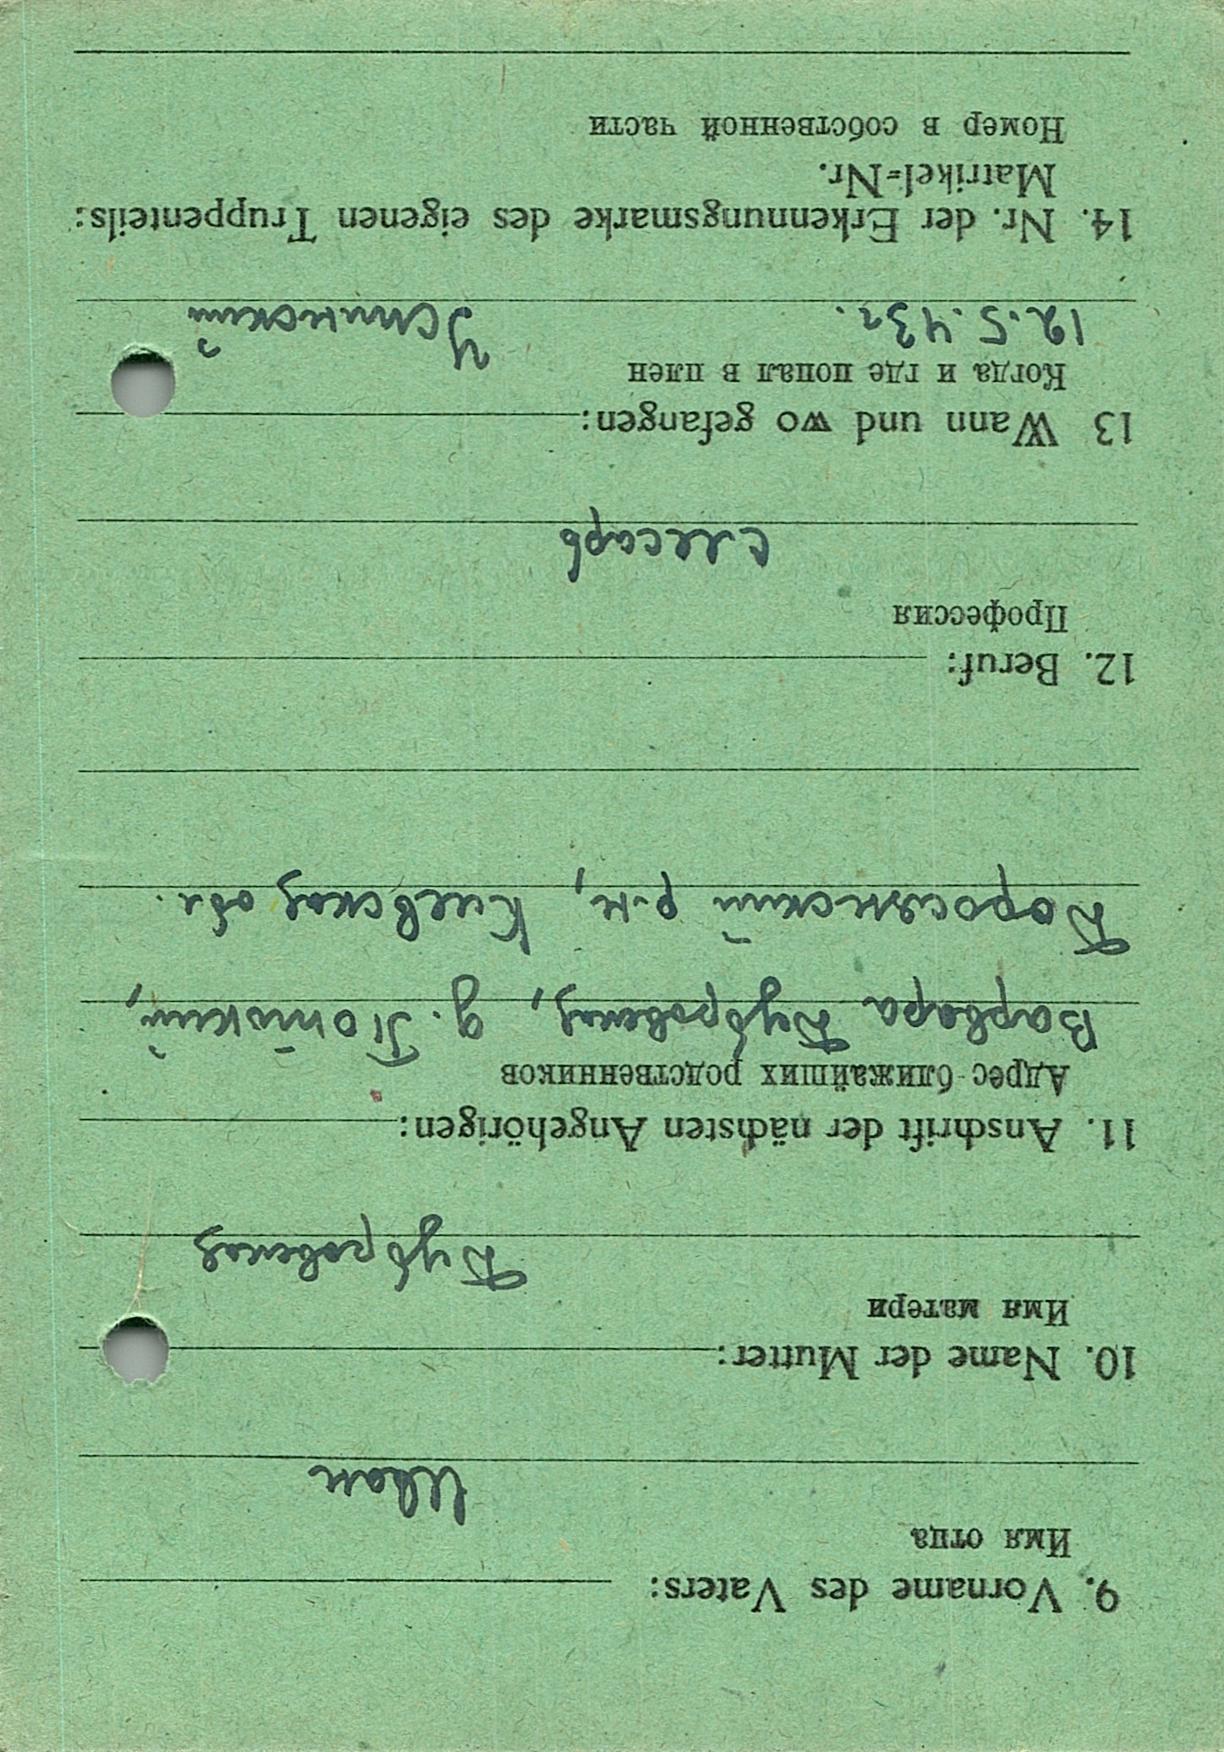 9. Vorname des Vaters:
Имя отца
Иван
10. Name der Mutter:
Имя матери
Бубровская
11. Anschrift der nächsten Angehörigen:
Адрес ближайших родственников
Варвара Бубровская, д.
р-н, Киевская обл.
12. Beruf:
Профессия
слесарь
13 Wann und wo gefangen:
Когда и где попал в плен
12.5.43г.
14. Nr. der Erkennungsmarke des eigenen Truppenteils:
Matrikel-Nr.
Номер в собственной части